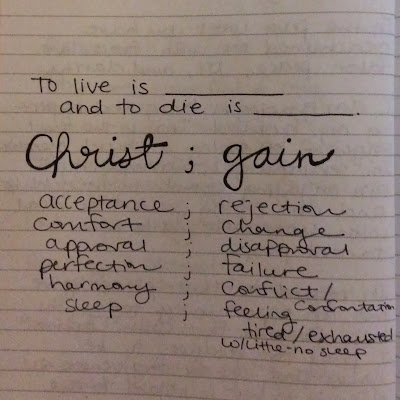 To live is __________
and to die is _________.
Christ ; gain
acceptance ; rejection
comfort ; change
approval ; disapproval
perfection ; failure
harmony ; conflict/
confrontation
sleep ; feeling
tired/exhausted
w/little-no sleep